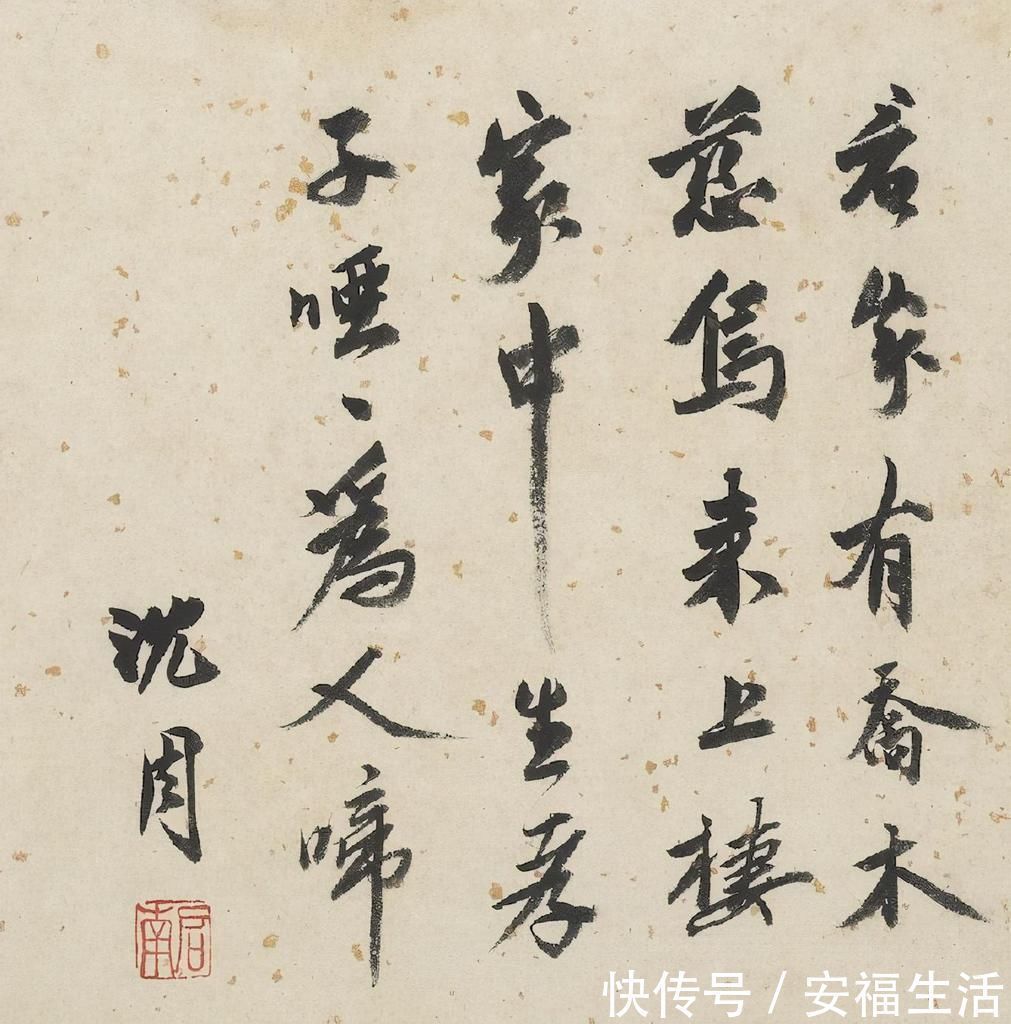 君家有喬木
慈烏來上棲
家中生孝
子啞〻爲人啼
沈周
启南
快传号/安福生活